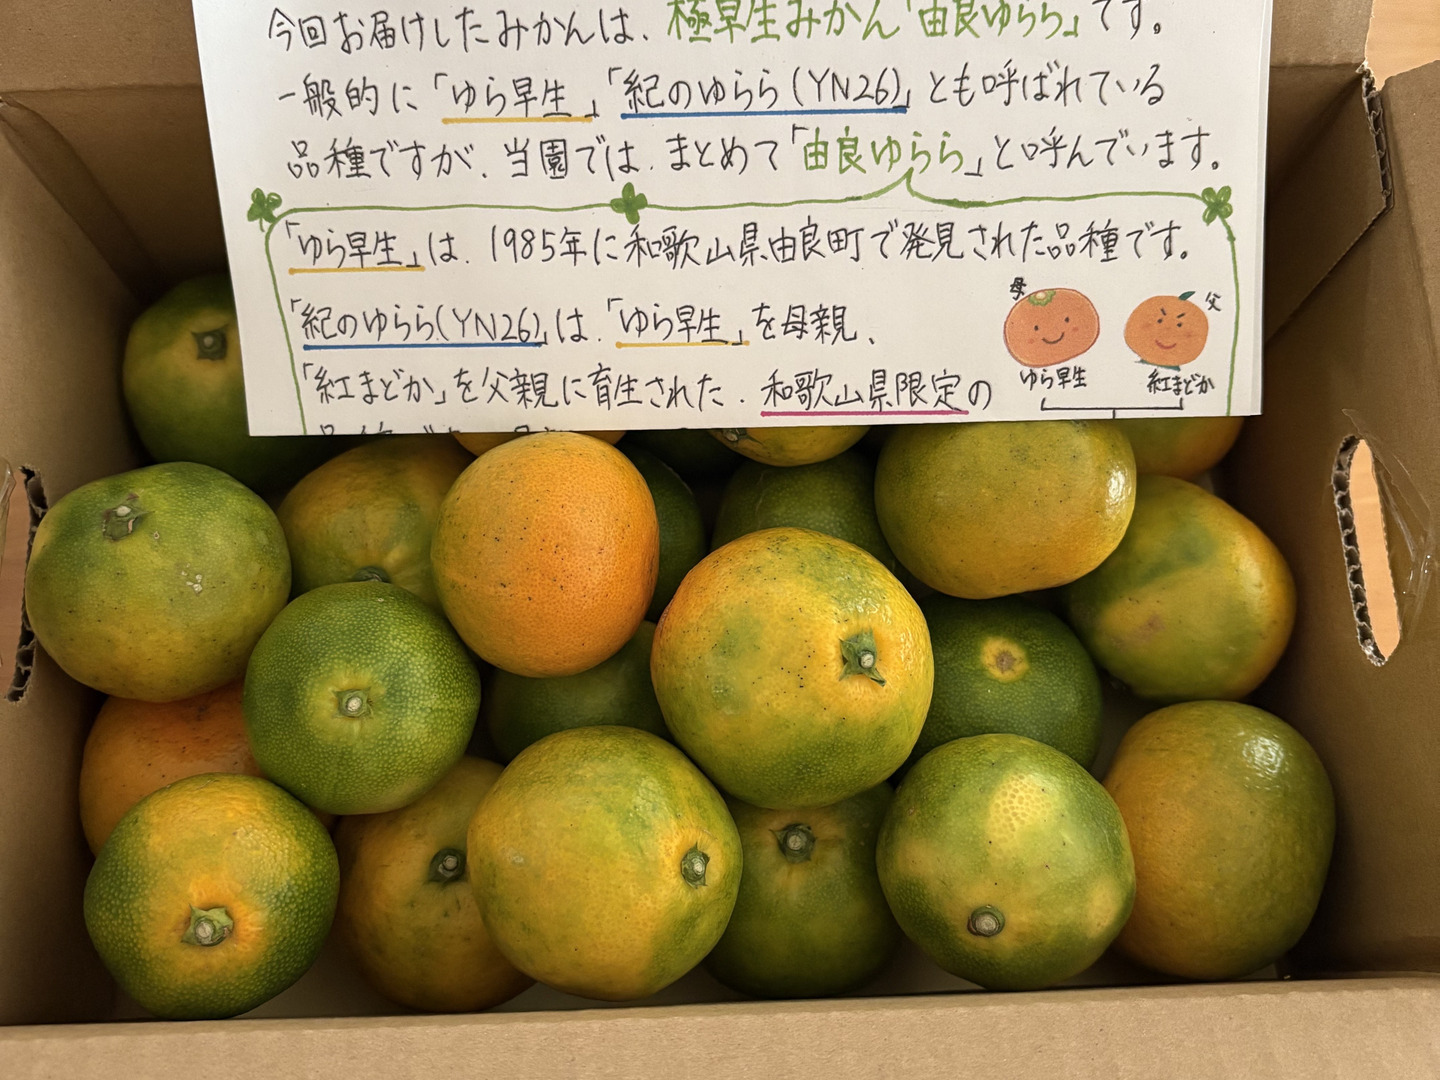 今回お届けしたみかんは、極早生みかん「由良ゆらら」です。
一般的に「ゆら早生」「紀のゆらら(YN26)」とも呼ばれている
品種ですが、当園では、まとめて「由良ゆらら」と呼んでいます。
「ゆら早生」は、1985年に和歌山県由良町で発見された品種です。
「紀のゆらら(YN26)」は、「ゆら早生」を母親、
「紅まどか」を父親に育生された、和歌山県限定の
母
父
ゆら早生
紅まどか